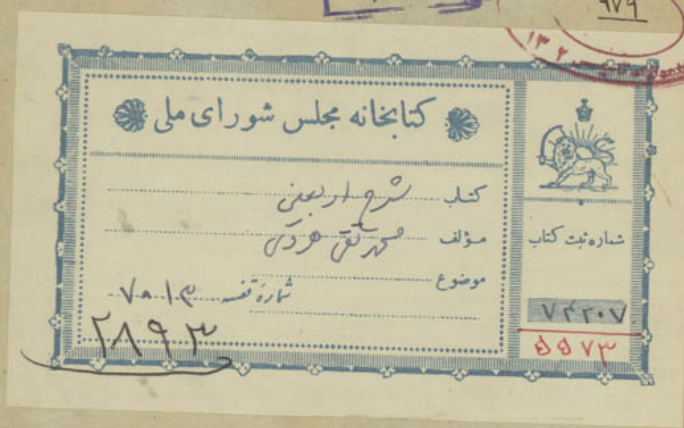 ۹۷۹
کتابخانه مجلس شورای ملی
کتاب شرح اربعین
مؤلف محمد تقی هروی
موضوع
شماره قفسه ۷۸۱۳
۲۸۹۳
شماره ثبت کتاب
۷۴۲۰۷
۵۵۷۳